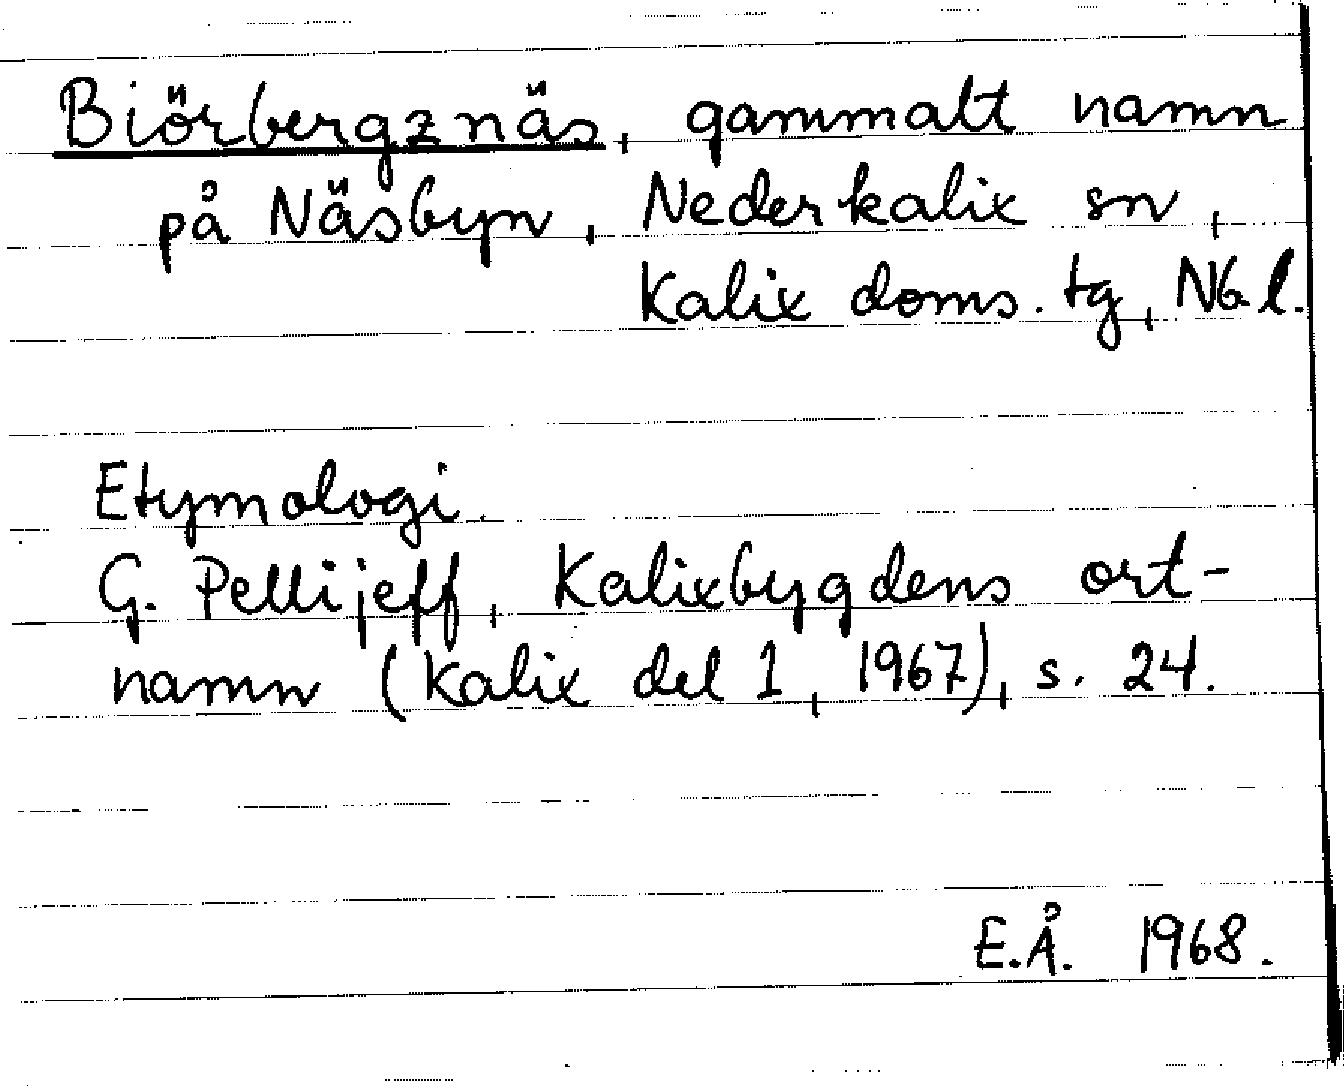 Biörbergznäs, gammalt namn
på Näsbyn, Nederkalix sn,
Kalix doms. tg, Nb. l.
Etymologi.
G. Pellijeff, Kalixbygdens ort-
namn (Kalix del 1, 1967), s. 24.
E.Å. 1968.